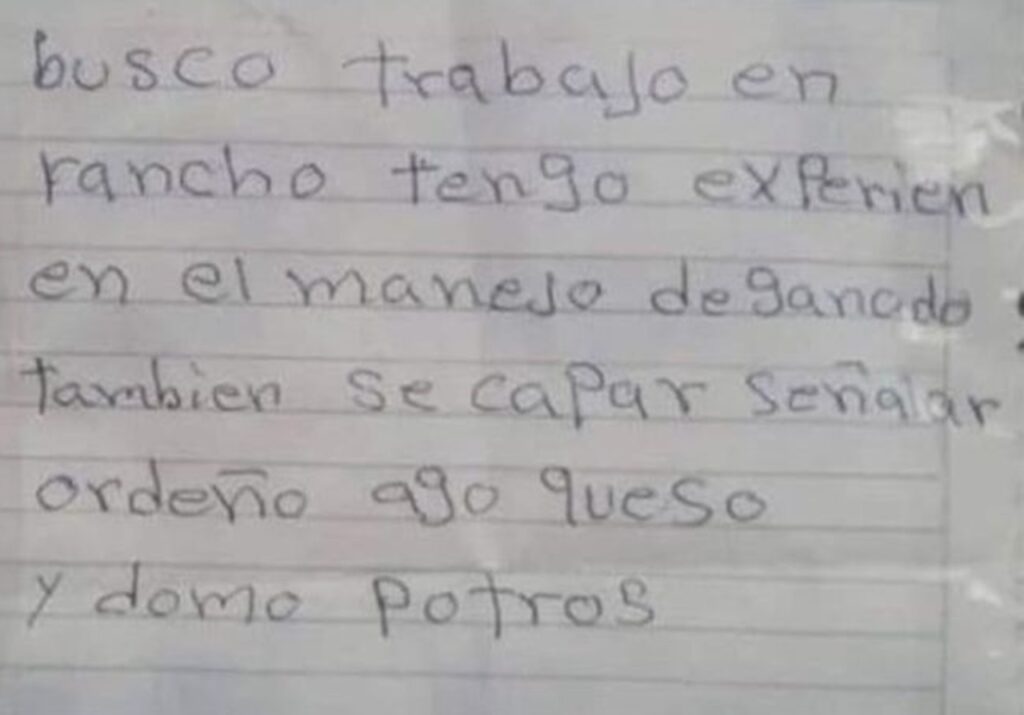 busco trabajo en
rancho tengo experien
en el manejo de ganado
tambien se capar señalar
ordeño ago queso
y domo potros